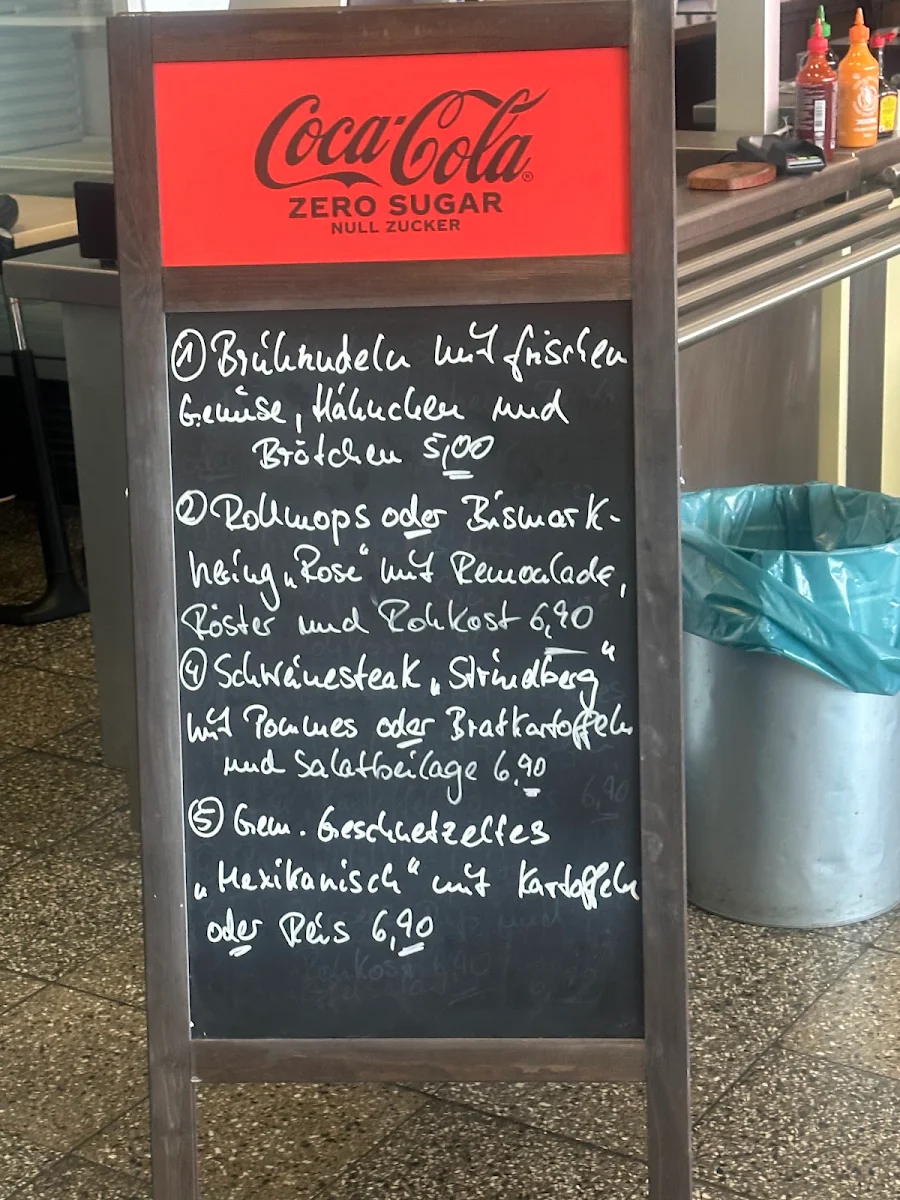 Coca-Cola®
ZERO SUGAR
NULL ZUCKER
① Brühnudeln mit frischen
Gemüse, Hähnchen und
Brötchen 5,00
② Rollmops oder Bismark-
hering „Rose“ mit Remoulade,
Röster und Rohkost 6,90
④ Schweinesteak „Strindberg“
mit Pommes oder Bratkartoffeln
und Salatbeilage 6,90
⑤ Gem. Geschnetzeltes
„Mexikanisch“ mit Kartoffeln
oder Reis 6,90